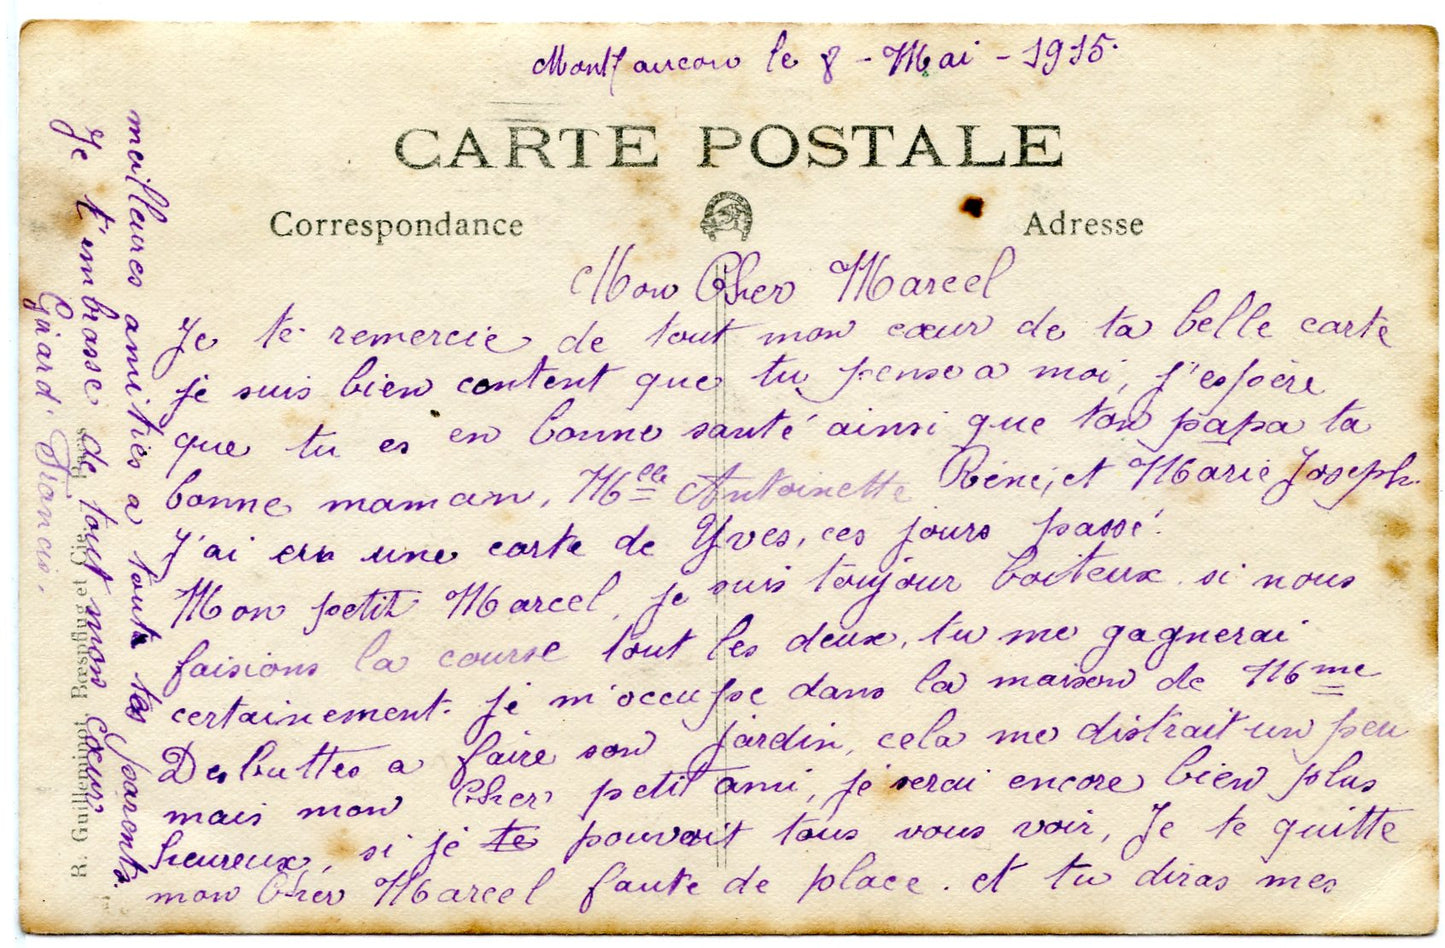 Montfaucon le 8 - Mai - 1915.
CARTE POSTALE
Correspondance
Adresse
Mon Cher Marcel
Je te remercie de tout mon cœur de ta belle carte
je suis bien content que tu pense a moi, j'espère
que tu es en bonne santé ainsi que ton papa ta
bonne maman, Melle Antoinette Réné, et Marie Joseph.
J'ai eru une carte de Yves, ces jours passé.
Mon petit Marcel, je suis toujour boiteux si nous
faisions la course tout les deux, tu me gagnerai
certainement. je m'occupe dans la maison de Mme
Desbuttes a faire son jardin, cela me distrait un peu
mais mon Cher petit ami, je serai encore bien plus
heureux, si je te pouvait tous vous voir, Je te quitte
mon Cher Marcel faute de place. et tu diras mes
meilleures amitiés a toute tes parents.
Je t'embrasse de tout mon cœur
Francis.
R. Guilleminot, Bœspflug et Cie